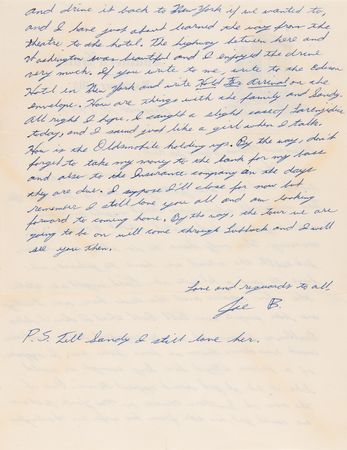 and drive it back to New York if we wanted to,
and I have just about learned the way from the
theatre to the hotel. The highway between here and
Washington was beautiful and I enjoyed the drive
very much. If you write to me, write to the Edison
Hotel in New York and write Hold for arrival on the
envelope. How are things with the family and Sandy.
All right I hope. I caught a slight case of Larenjidus
today, and I sound just like a girl when I talk.
How is the Oldsmobile holding up. By the way, don't
forget to take my money to the bank for my bass
and also to the Insurance company on the days
they are due. I suppose I'll close for now but
remember I still love you all and am looking
forward to coming home. By the way, the tour we are
going to be on will come through Lubbock and I will
see you then.
Love and reguards to all.
Joe B.
P.S. Tell Sandy I still love her.